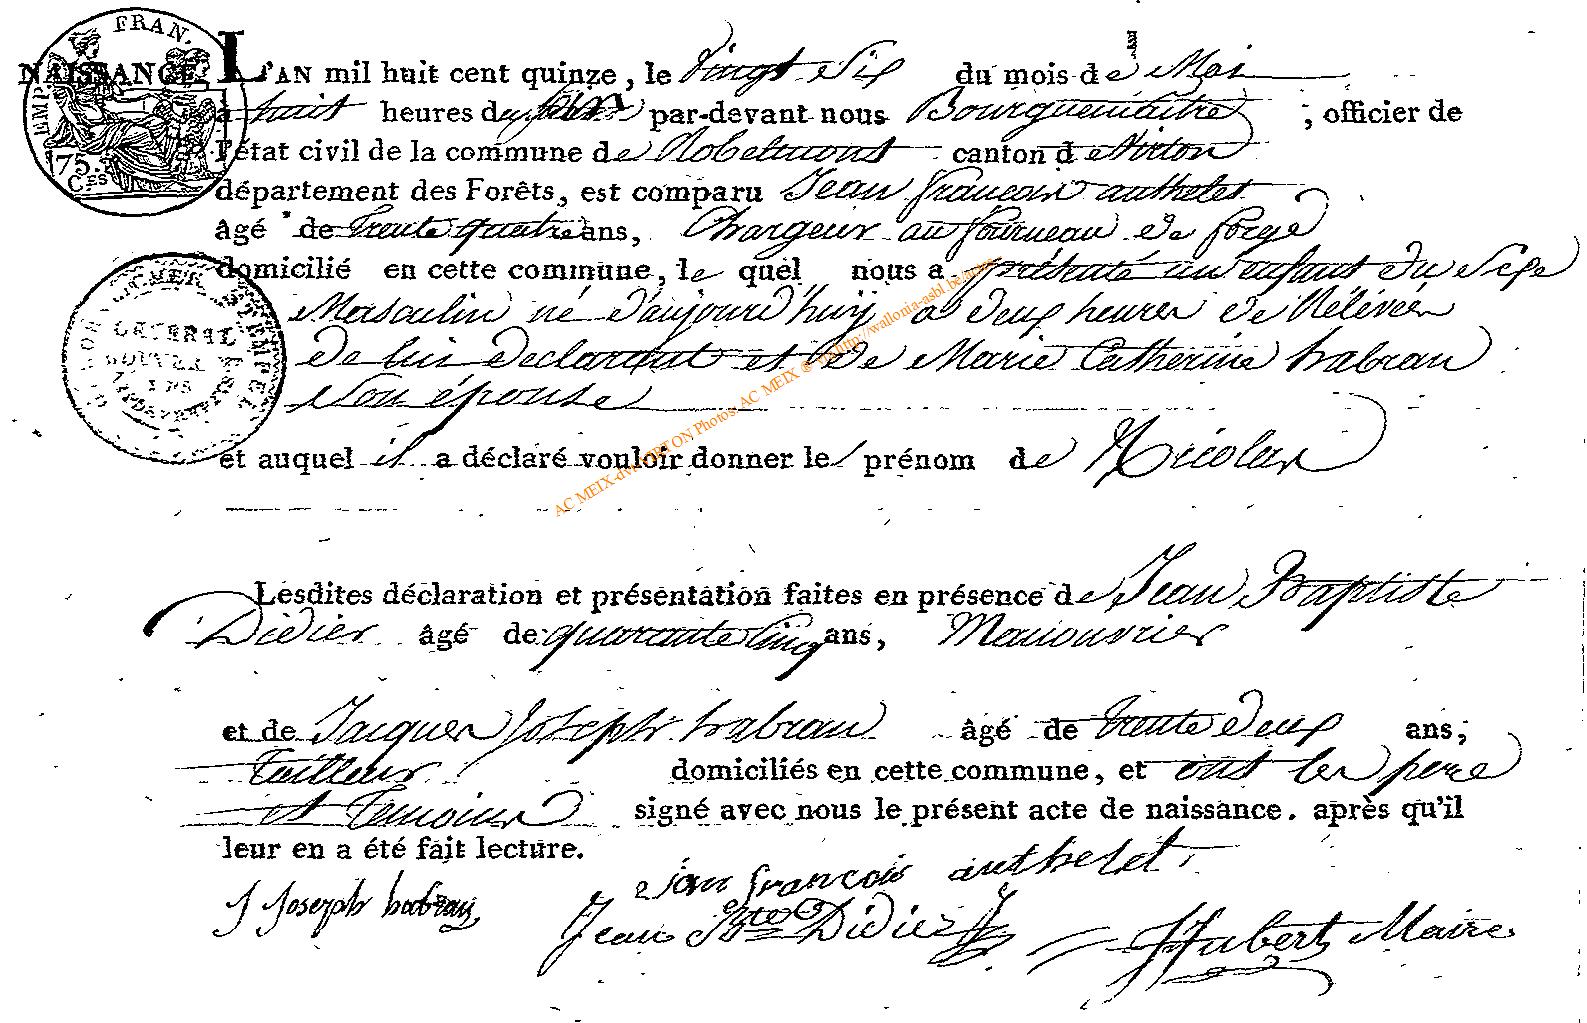 EMP. FRAN.
75
Ces
NAISSANCE. L'AN mil huit cent quinze, le Vingt Six du mois de Mai
à huit heures du par-devant nous Bourguemaitre, officier de
l'état civil de la commune de Robelmont canton de Virton
département des Forêts, est comparu Jean françois authelet
âgé de trente quatre ans, Chargeur au fourneau de forge
domicilié en cette commune, le quel nous a présenté un enfant du Sexe
Masculin né d'aujourd'huy a deux heures de Rélévée
de lui declarant et de Marie Catherine habran
Son épouse
et auquel il a déclaré vouloir donner le prénom de Nicolas
Lesdites déclaration et présentation faites en présence de Jean Baptiste
Didier âgé de quarante Cinq ans, Manouvrier
et de Jacques Joseph habran âgé de trente deux ans,
tailleur domiciliés en cette commune, et ont les pere
et temoins signé avec nous le présent acte de naissance. après qu'il
leur en a été fait lecture.
jan françois authelet
J Joseph habran
Jean Bte Didier
Hubert Maire
AC MEIX-dvt-VIRTON Photos: AC MEIX @ http://wallonia-asbl.be